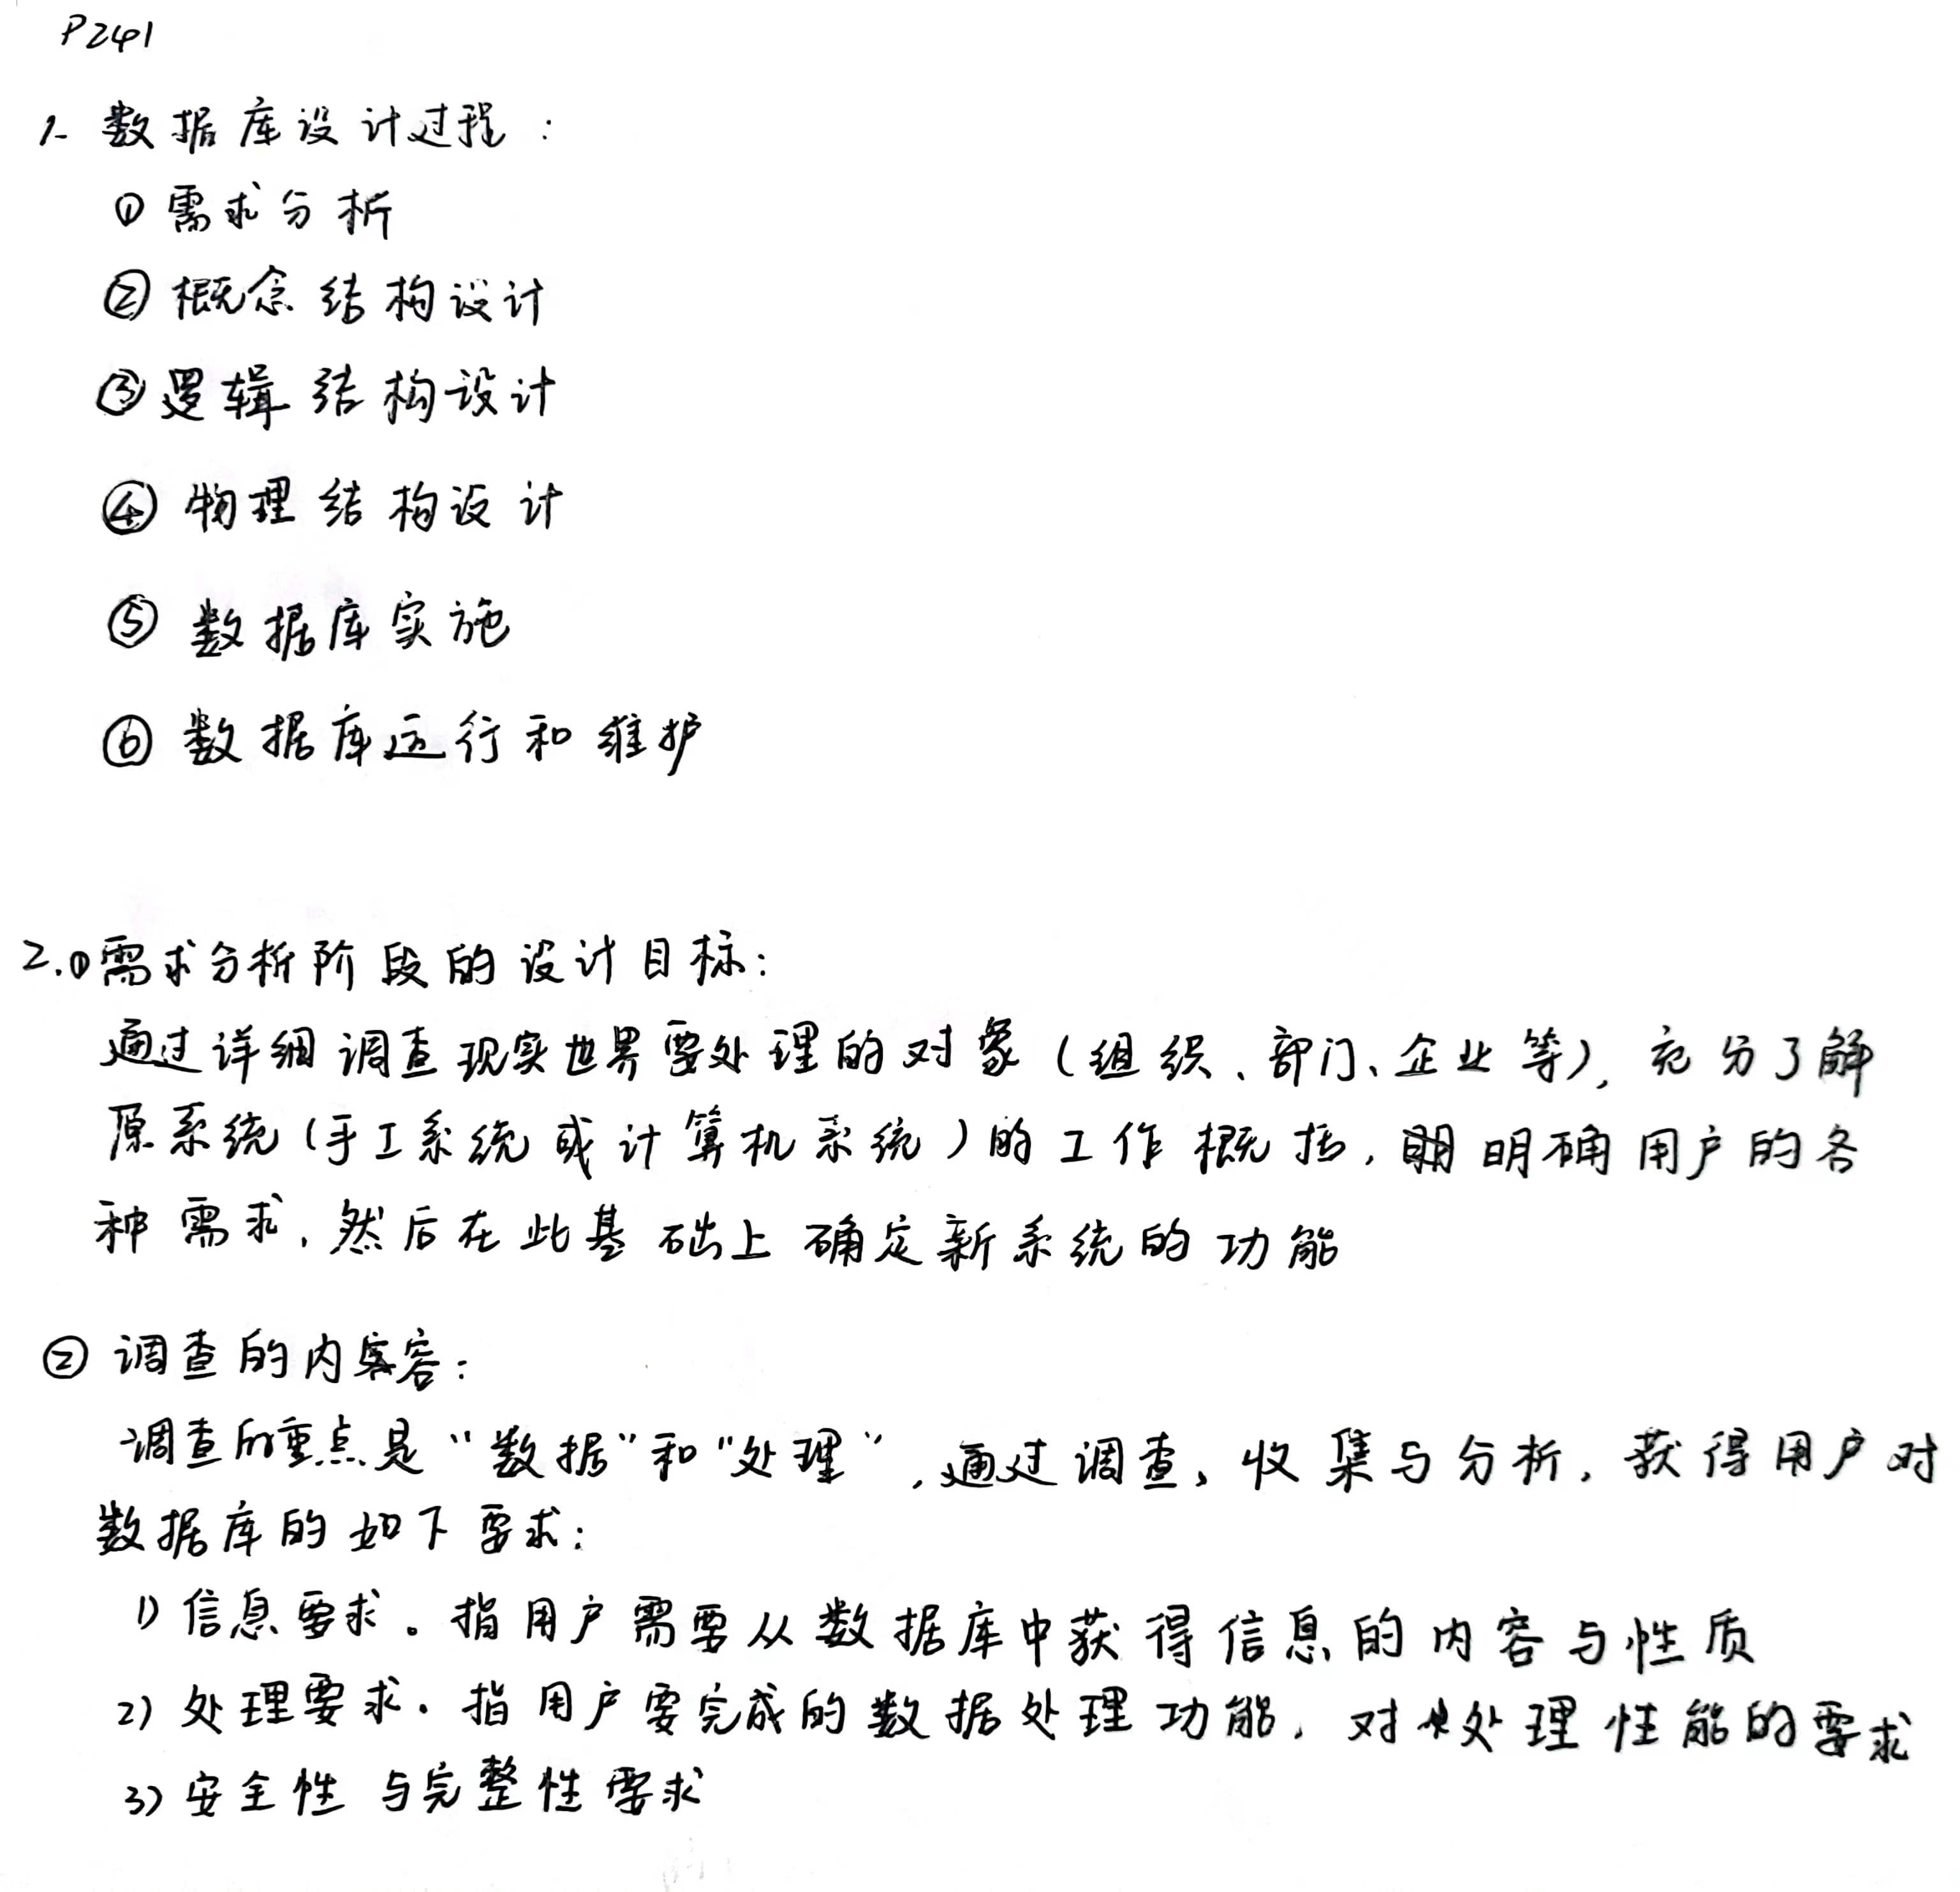 P241
1. 数据库设计过程：
① 需求分析
② 概念结构设计
③ 逻辑结构设计
④ 物理结构设计
⑤ 数据库实施
⑥ 数据库运行和维护
2.①需求分析阶段的设计目标：
通过详细调查现实世界要处理的对象（组织、部门、企业等），充分了解
原系统（手工系统或计算机系统）的工作概括，明确用户的各
种需求，然后在此基础上确定新系统的功能
② 调查的内容：
调查的重点是“数据”和“处理”，通过调查、收集与分析，获得用户对
数据库的如下要求：
1) 信息要求。指用户需要从数据库中获得信息的内容与性质
2) 处理要求。指用户要完成的数据处理功能，对处理性能的要求
3) 安全性与完整性要求